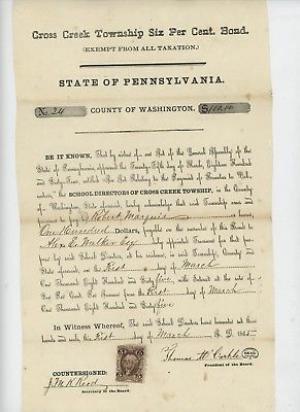 Cross Creek Township Six Per Cent. Bond.
(EXEMPT FROM ALL TAXATION.)
STATE OF PENNSYLVANIA.
No 24 COUNTY OF WASHINGTON. $100.00
BE IT KNOWN, That by virtue of an Act of the General Assembly of the
State of Pennsylvania approved the Twenty-Fifth day of March, Eighteen Hundred
and Sixty-Four, entitled "An Act Relating to the Payment of Bounties to Volunteers,"
the SCHOOL DIRECTORS OF CROSS CREEK TOWNSHIP, in the County
of Washington, State aforesaid, hereby acknowledge that said Township owes and
promises to pay to Robert Marquis or bearer,
One Hundred Dollars, payable on the surrender of this Bond to
Alex E Walker Esq duly appointed Treasurer for that purpose
by said School Directors, at his residence, in said Township, County and
State aforesaid, on the First day of March
One Thousand Eight Hundred and Sixty five with Interest at the rate of
Six Per Cent. Per Annum from the First day of March
One Thousand Eight Hundred and Sixty five
In Witness Whereof, The said School Directors have hereunto set their
hands and seals, this First day of March A. D. 1865
Thomas McCorkle
President of the Board.
COUNTERSIGNED:
J. M. K. Reed
Secretary of the Board.